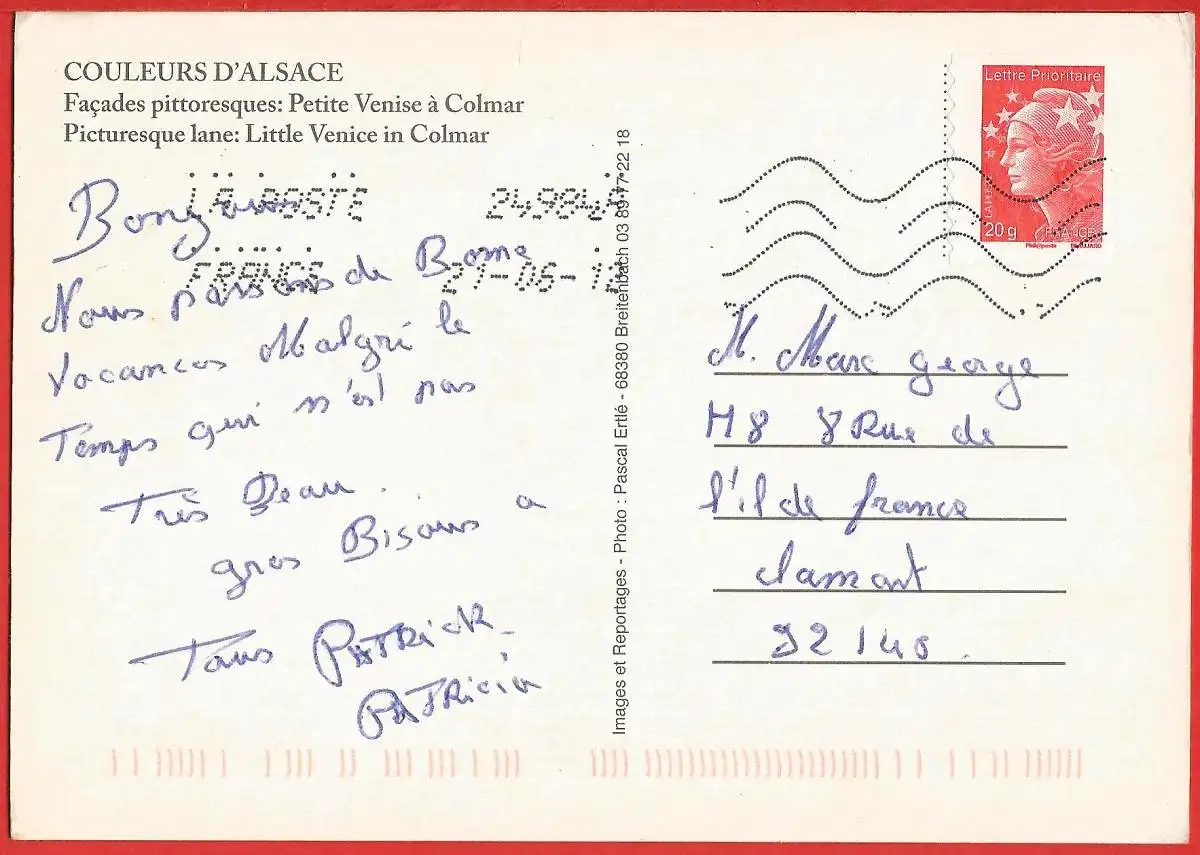 COULEURS D'ALSACE
Façades pittoresques: Petite Venise à Colmar
Picturesque lane: Little Venice in Colmar
LA POSTE 24984A
FRANCE 21-06-12
Bonjour
Nous passons de Bonne
Vacances Malgré le
Temps qui n'est pas
Très Beau.
gros Bisous a
Tous PATRick
PATRicia
Images et Reportages - Photo : Pascal Ertlé - 68380 Breitenbach 03 89 77 22 18
Lettre Prioritaire
20g
FRANCE
M. Marc george
H8 8 Rue de
l'il de france
clamart
92140.